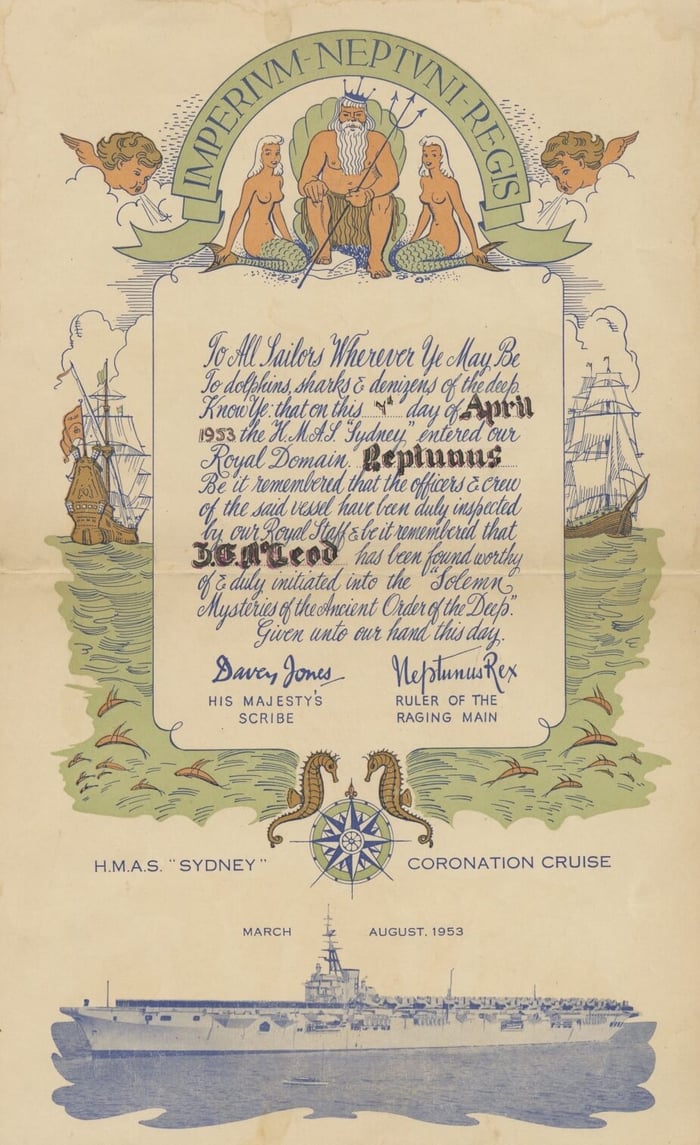 IMPERIVM-NEPTVNI-REGIS
To All Sailors Wherever Ye May Be
To dolphins, sharks & denizens of the deep.
Know Ye: that on this day of April
1953 the H.M.A.S. "Sydney" entered our
Royal Domain. Neptunus
Be it remembered that the officers & crew
of the said vessel have been duly inspected
by our Royal Staff & be it remembered that
McLeod has been found worthy
of & duly initiated into the "Solemn
Mysteries of the Ancient Order of the Deep."
Given unto our hand this day.
Davey Jones
HIS MAJESTY'S
SCRIBE
Neptunus Rex
RULER OF THE
RAGING MAIN
H.M.A.S. "SYDNEY" CORONATION CRUISE
MARCH AUGUST. 1953